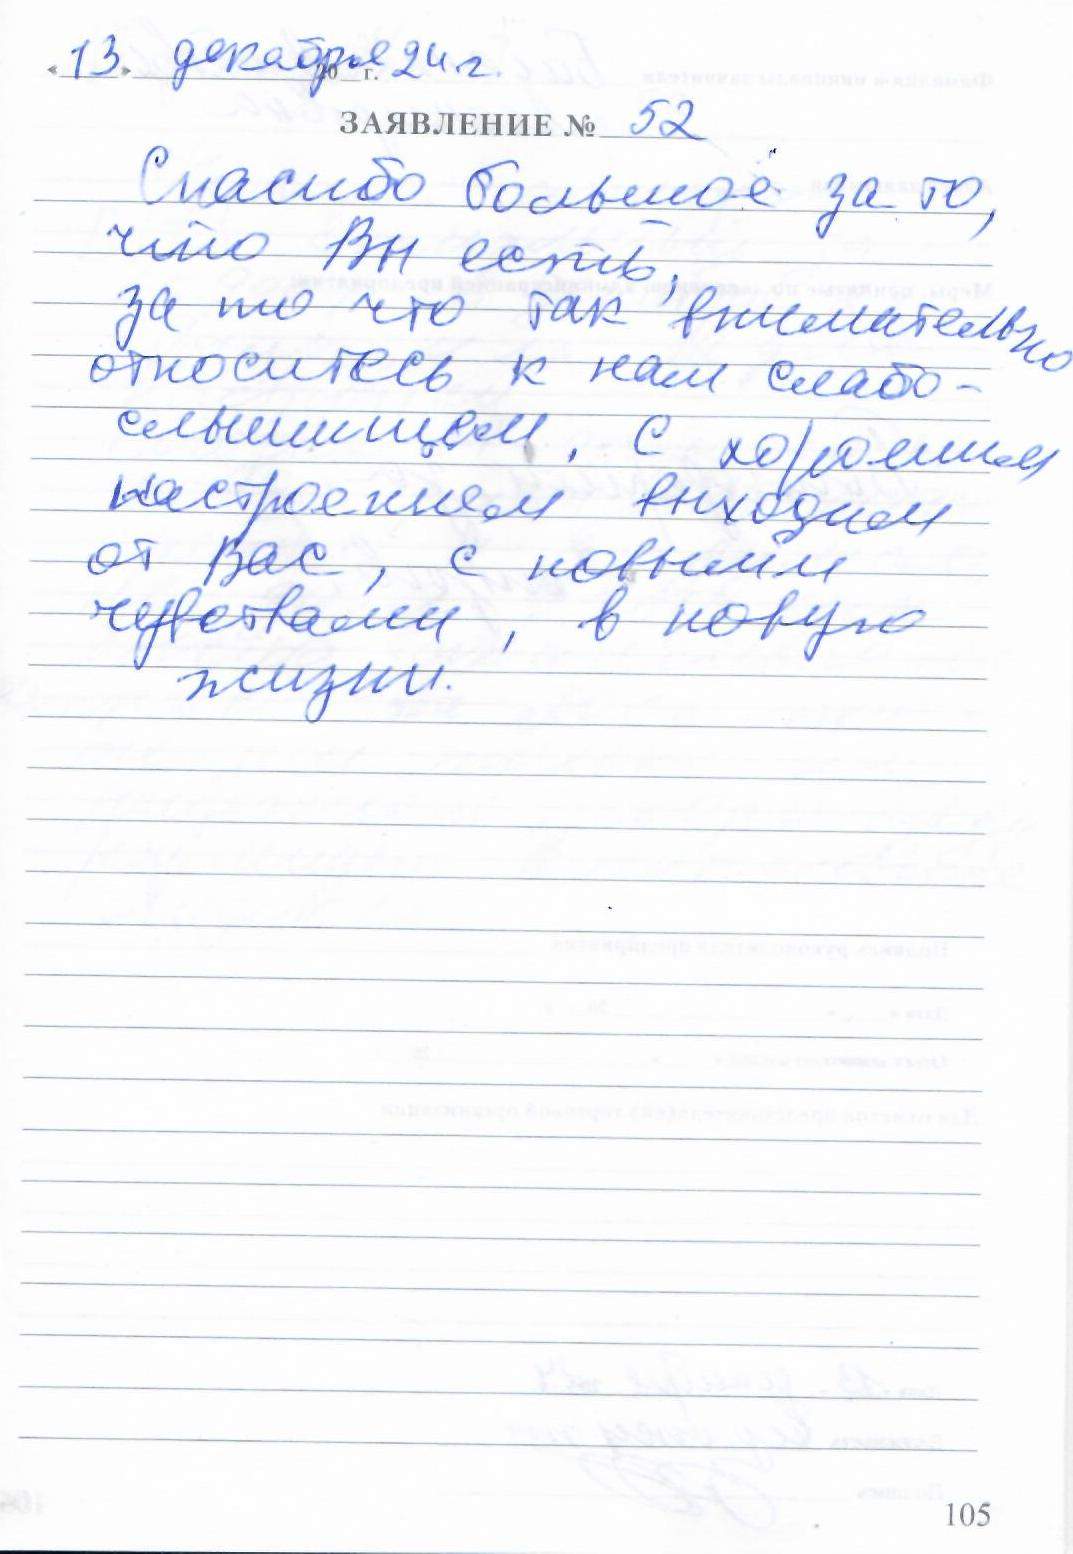 «13» декабря 24 г.
ЗАЯВЛЕНИЕ № 52
Спасибо большое за то,
что Вы есть,
за то что так внимательно
относитесь к нам слабо-
слышищем, с хорошим
настроением выходим
от Вас, с новыми
чувствами, в новую
жизни.
105